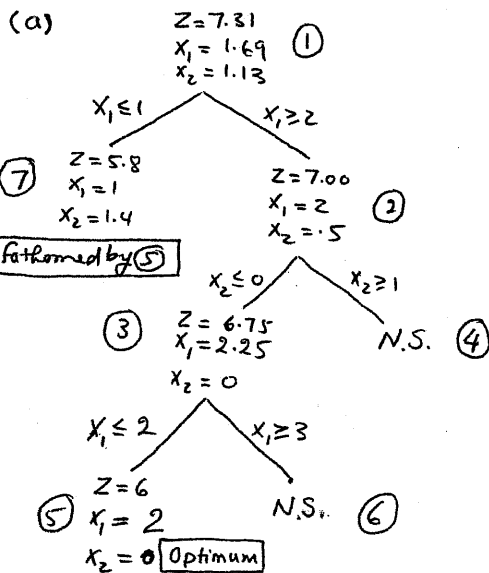 (a)
Z=7.31
X₁=1.69
X₂=1.13
①
X₁≤1
X₁≥2
⑦
Z=5.8
X₁=1
X₂=1.4
fathomed by ⑤
Z=7.00
X₁=2
X₂=.5
②
X₂≤0
X₂≥1
③
Z=6.75
X₁=2.25
X₂=0
N.S.
④
X₁≤2
X₁≥3
⑤
Z=6
X₁=2
X₂=0
Optimum
N.S.
⑥